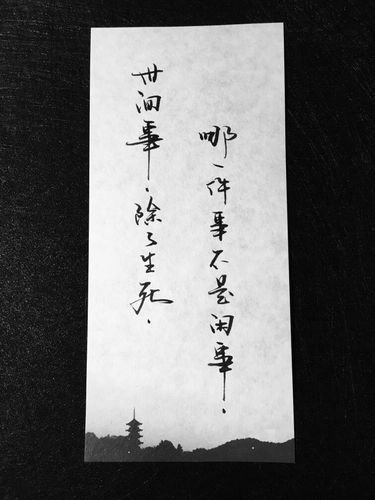 世间事，除了生死，
哪一件事不是闲事。